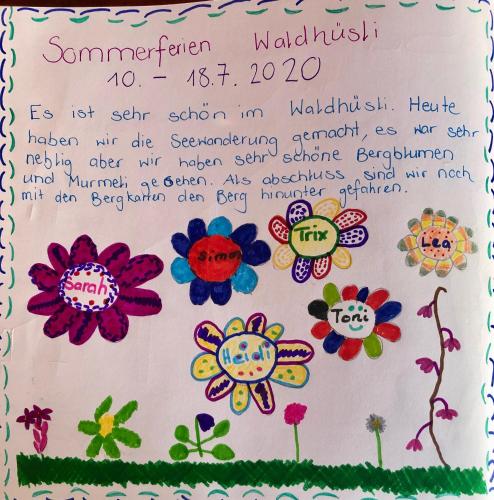 Sommerferien Waldhüsli
10. - 18.7. 2020
Es ist sehr schön im Waldhüsli. Heute
haben wir die Seewanderung gemacht, es war sehr
neblig aber wir haben sehr schöne Bergblumen
und Murmeli gesehen. Als abschluss sind wir noch
mit den Bergkarten den Berg hinunter gefahren.
Sarah
Simon
Trix
Lea
Toni
Heidi